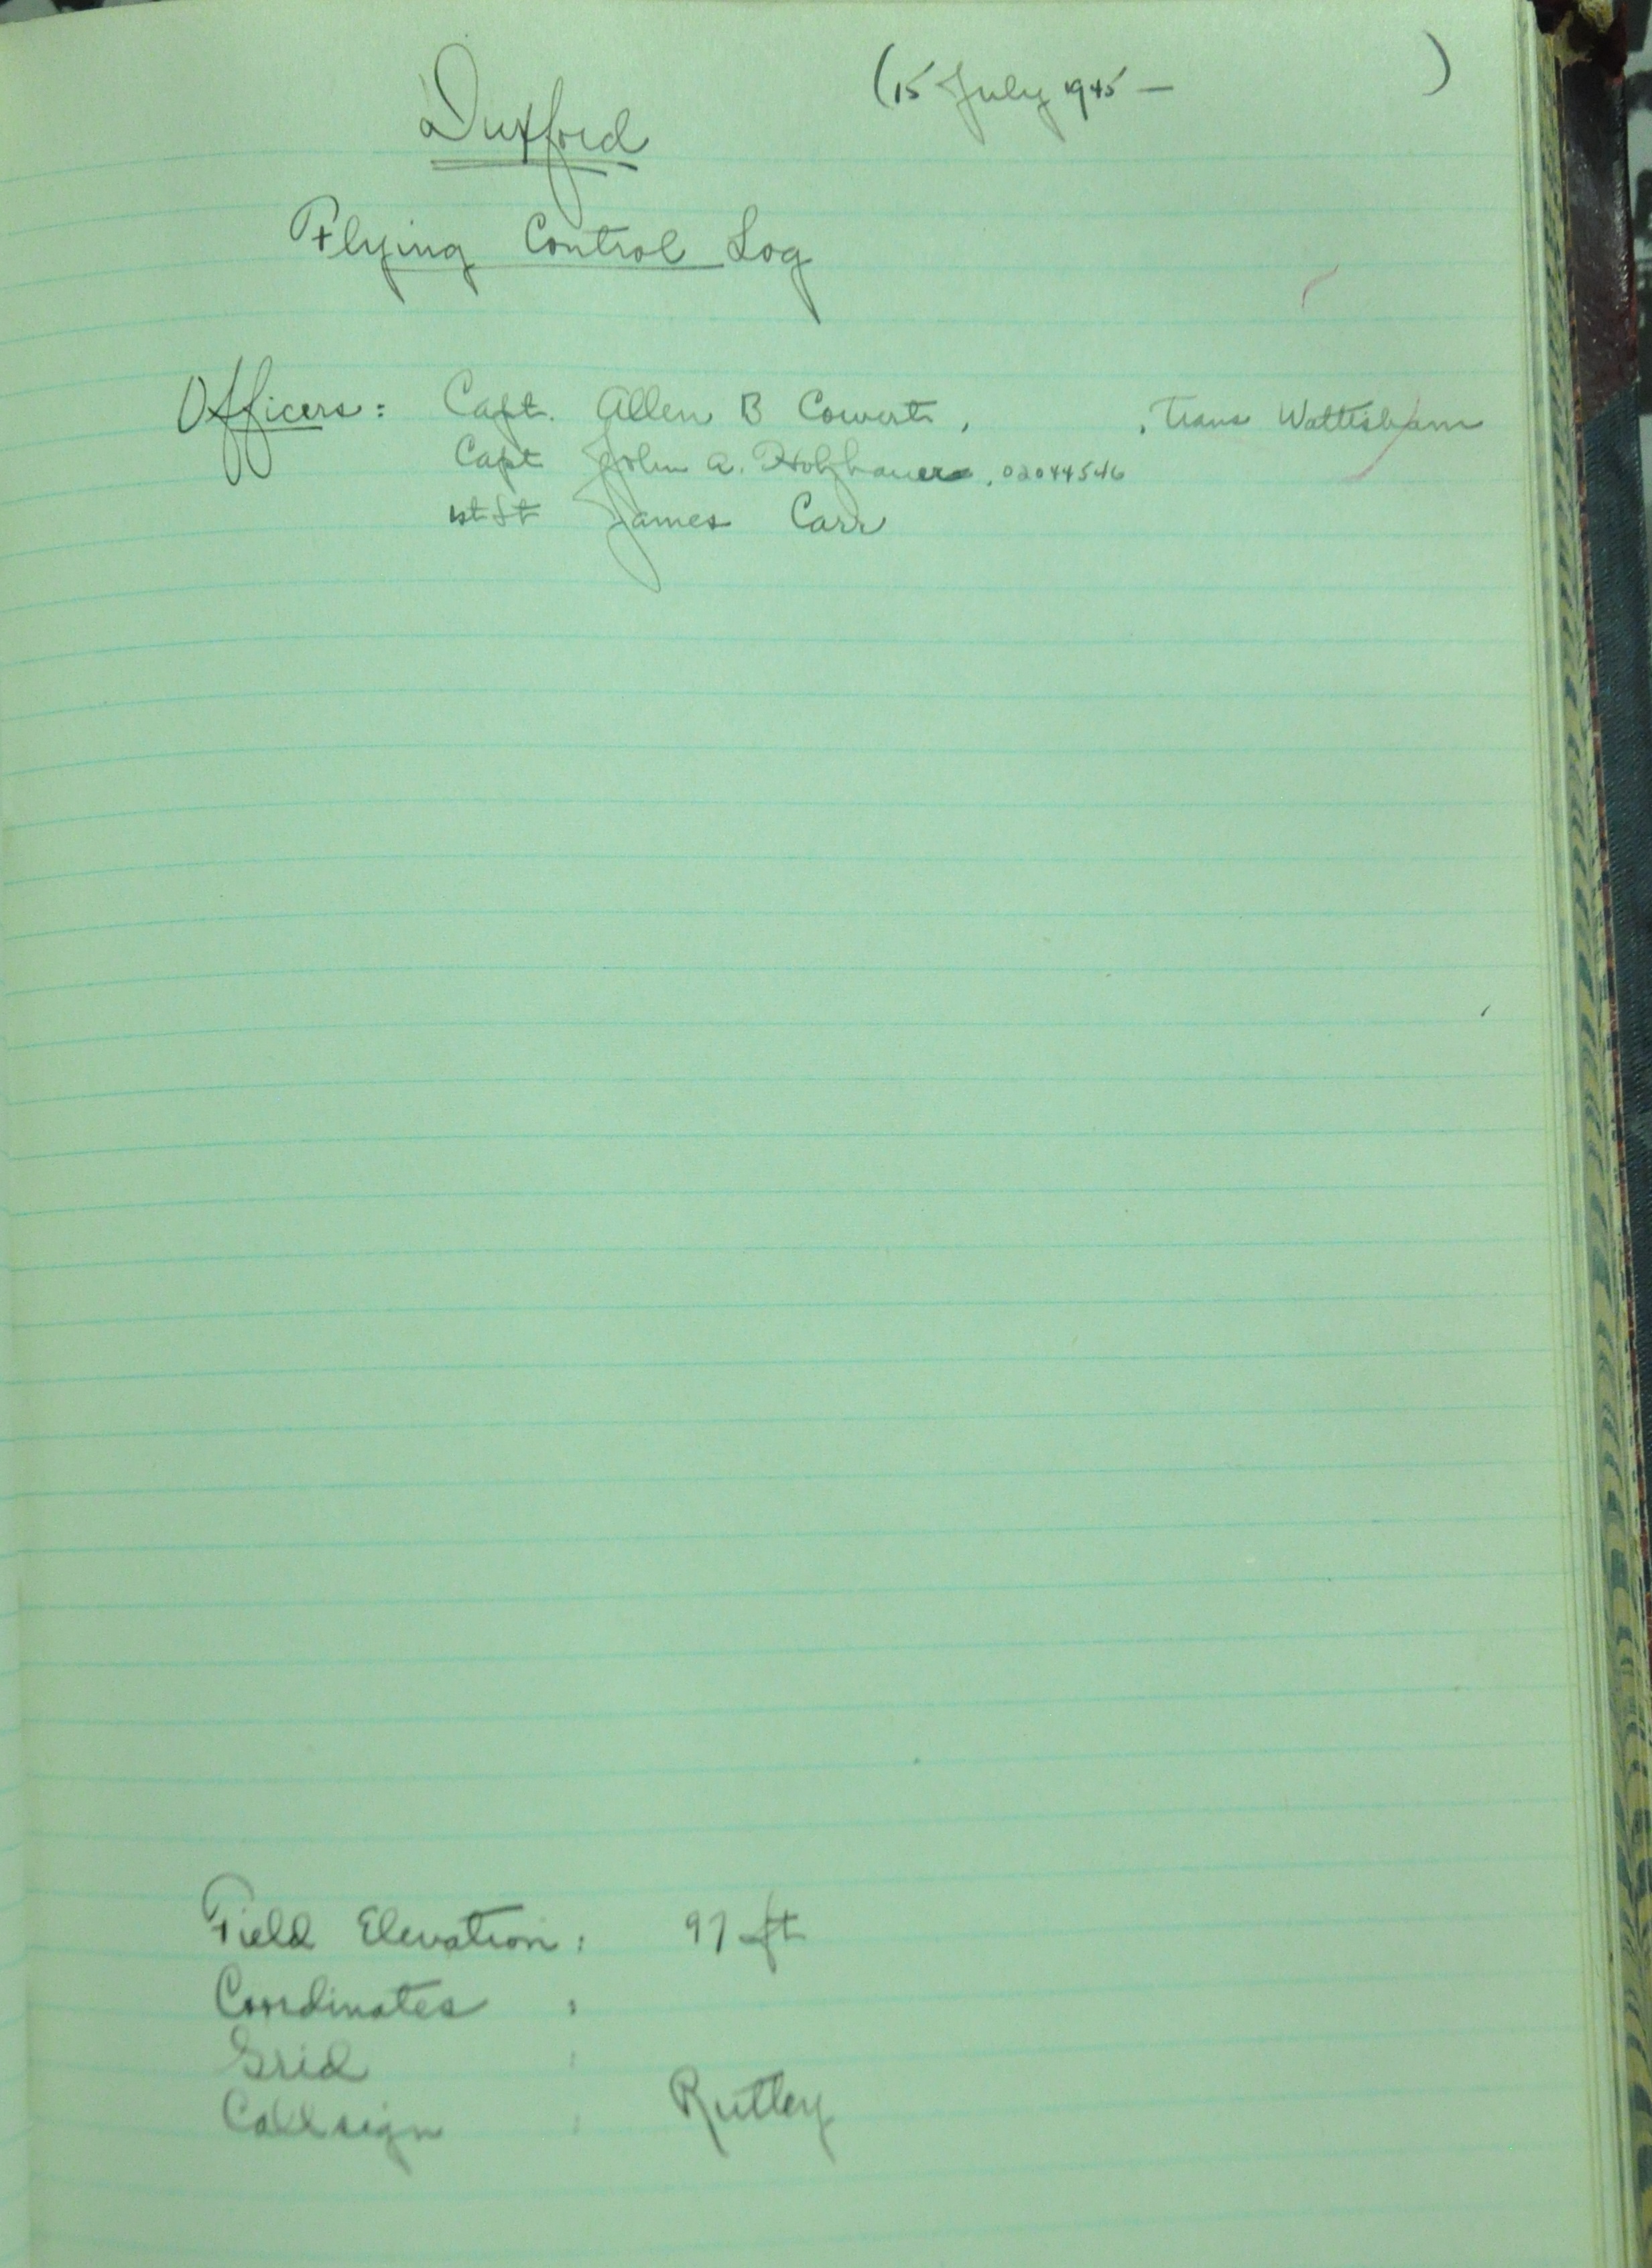 Duxford (15 July 1945 — )
Flying Control Log
Officers: Capt. Allen B Cowart, , Trans Wattisham
Capt John A. Holzhauer, 02044546
1st Lt James Carr
Field Elevation: 97 ft
Coordinates :
Grid :
Callsign : Rutley